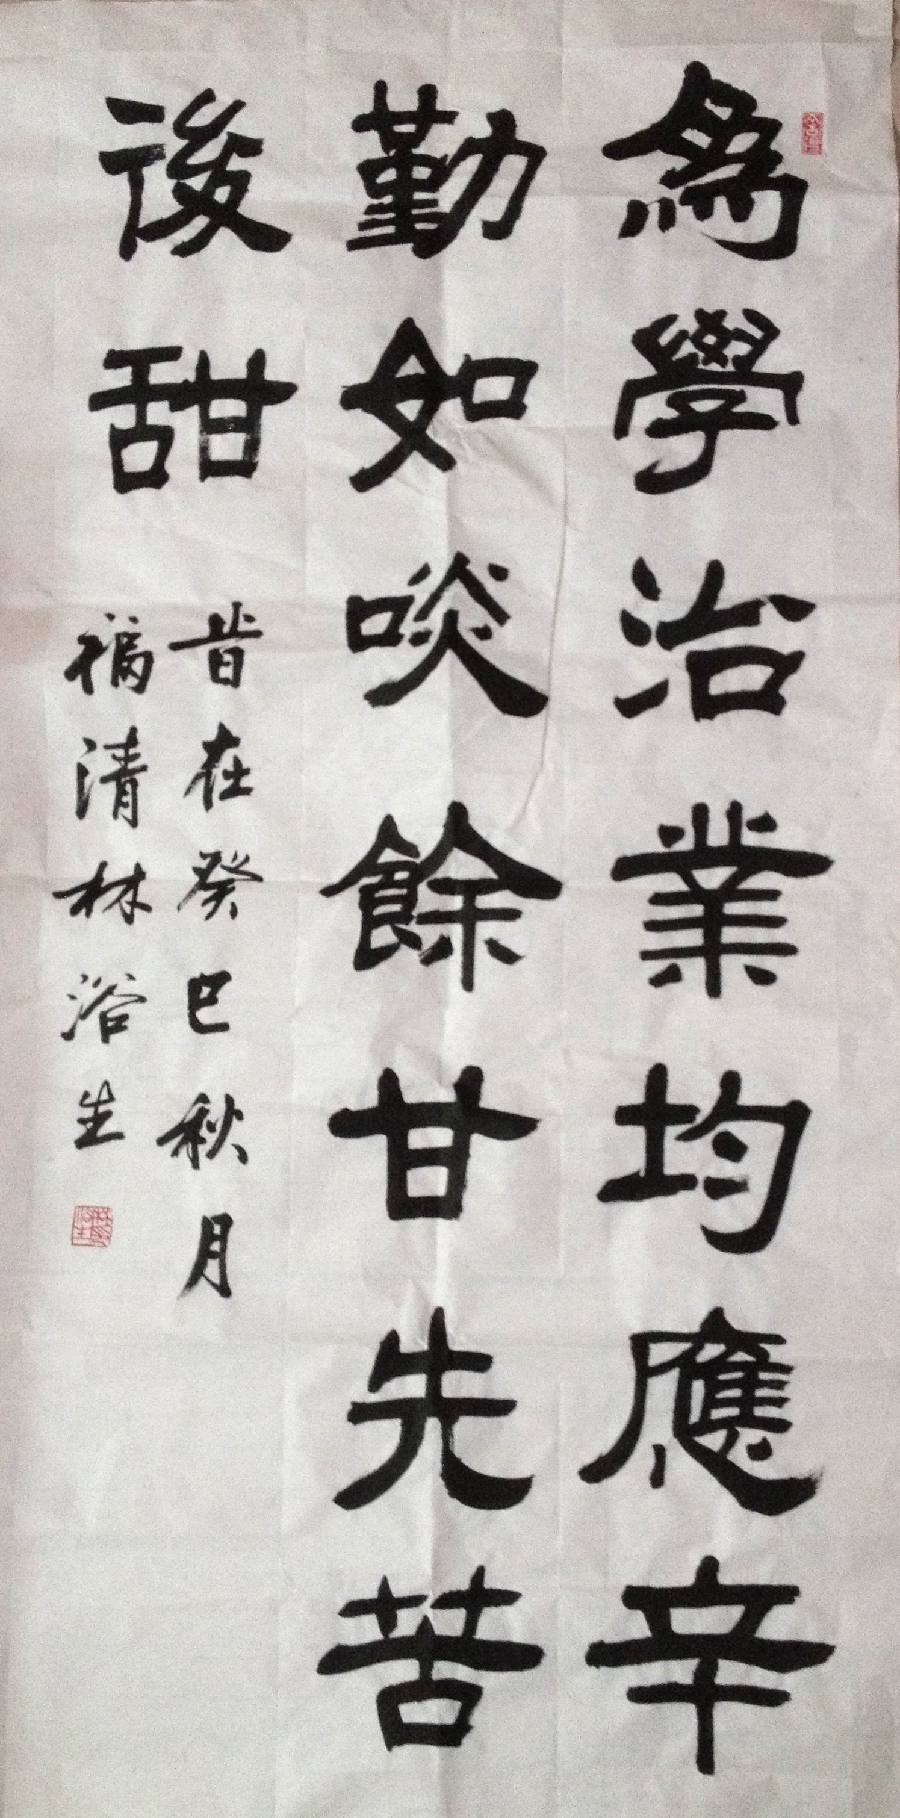 為學治業均應辛
勤如啖餘甘先苦
後甜
昔在癸巳秋月
福清林浴生